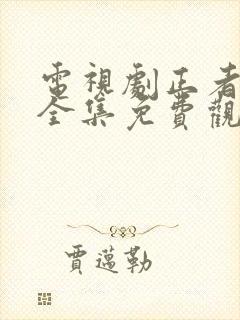 電視劇正者
全集免費觀
賈邁勒